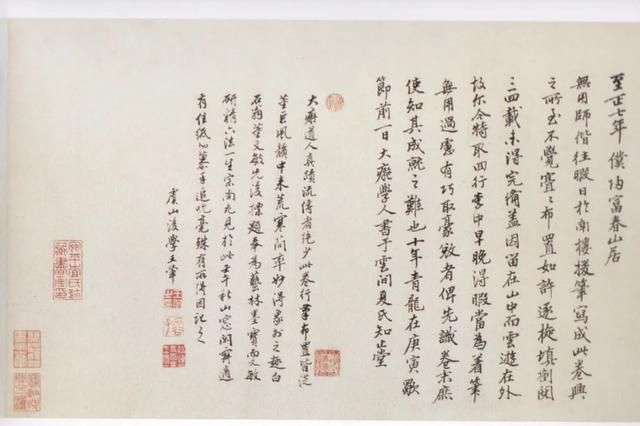 至正七年僕歸富春山居
無用師偕往暇日於南樓援筆寫成此卷興
之所至不覺亹亹布置如許逐旋填劄閱
三四載未得完備蓋因留在山中而雲遊在外
故尔今特取回行李中早晚得暇當為着筆
無用過慮有巧取豪敚者俾先識卷末庶
使知其成就之難也十年青龍在庚寅歜
節前一日大癡學人書于雲間夏氏知止堂
大癡道人真蹟流傳者絕少此卷行筆布置皆從
董巨風韻中来荒寒簡率妙得象外之趣白
石翁董文敏先後摽題奉為藝林墨寶而文敏
研精六法一生宗尚尤見於此壬午秋山窓閒寂適
有佳紙心摹手追
虞山後學王翬